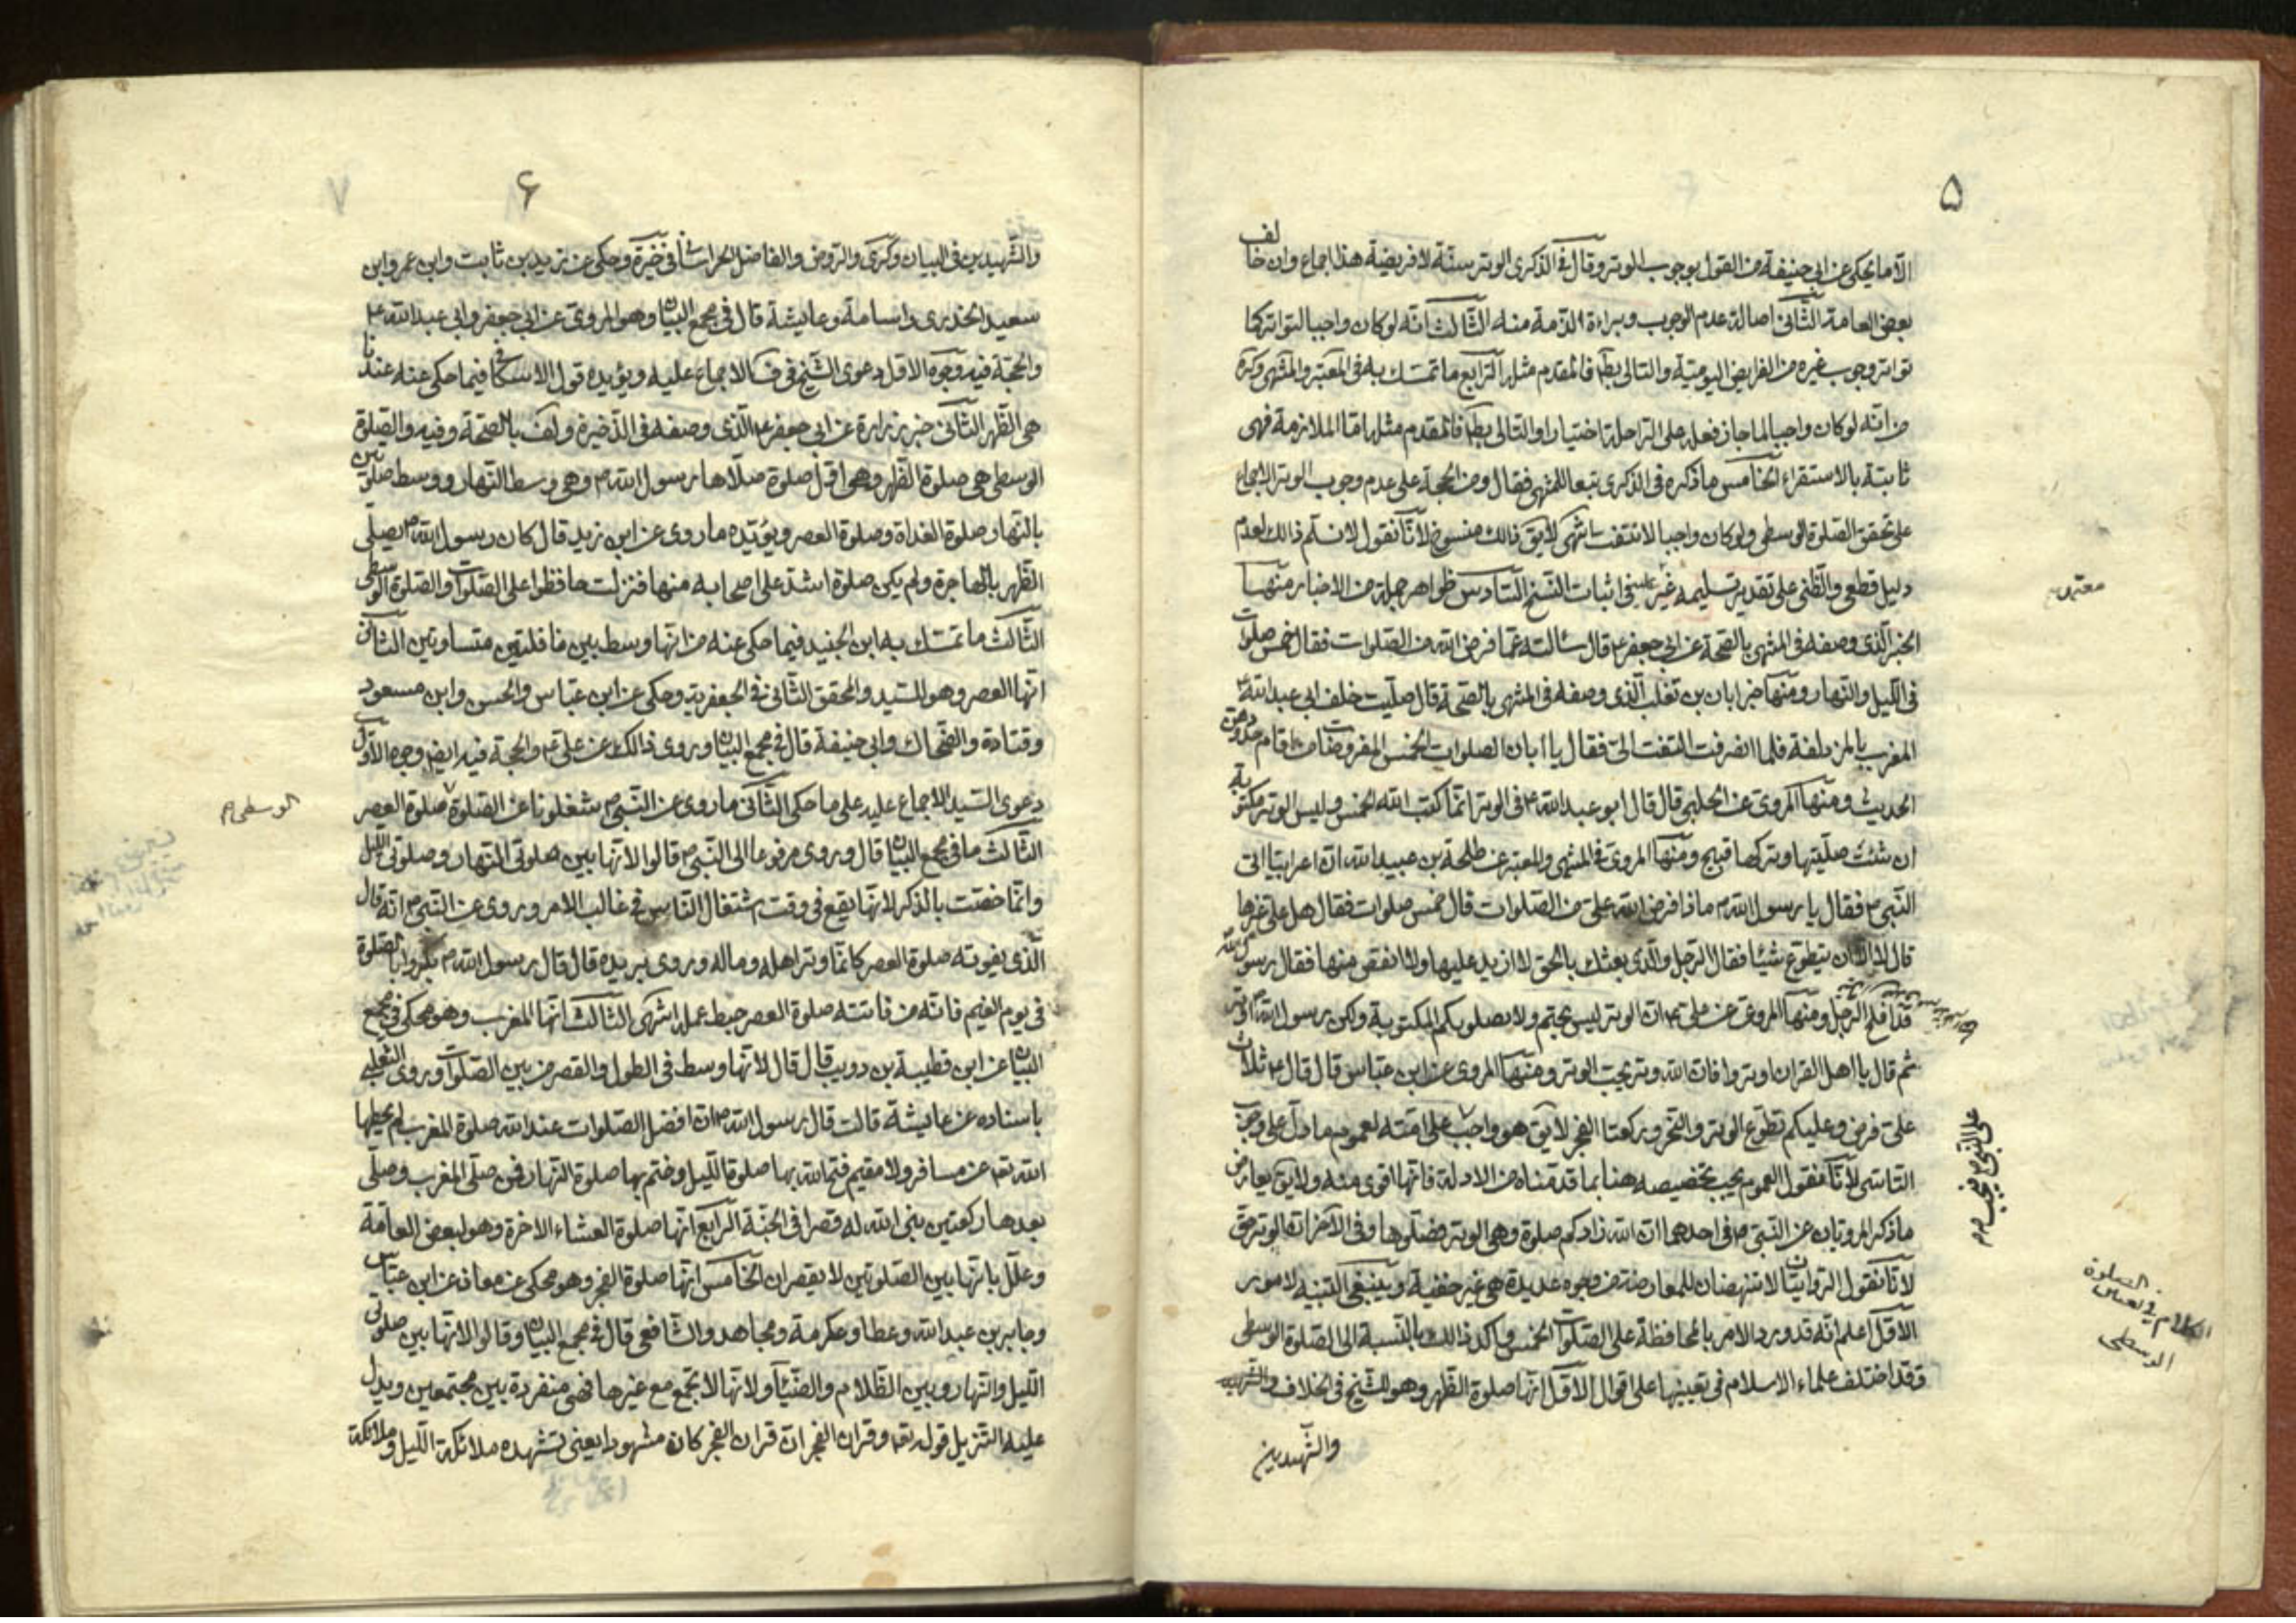 ۵
الا ما يحكى عن ابى حنيفة من القول بوجوب الوتر وقال فى الذكرى الوتر سنة لا فريضة هذا اجماع وان خالف
بعض العامة الثانى اصالة عدم الوجوب وبراءة الذمة منه الثالث انه لو كان واجبا لتواتر كما
تواتر وجوب غيره من الفرايض اليومية والتالى بط فالمقدم مثله الرابع ما تمسك به فى المعتبر والمنتهى وكره
من انه لو كان واجبا لما جاز فعله على الراحلة اختيارا والتالى بط فالمقدم مثله اما الملازمة فهى
ثابتة بالاستقراء الخامس ما ذكره فى الذكرى تبعا للمنتهى فقال ومن الحجة على عدم وجوب الوتر الاجماع
على تحقق الصلوة الوسطى ولو كان واجبا لانتفت انتهى لايق ذالك منسوخ لانا نقول لا نسلم ذالك لعدم
دليل قطعى والظنى على تقدير تسليمه غير فى اثبات النسخ السادس ظواهر جملة من الاخبار منها
الخبر الذى وصفه فى المنتهى بالصحة عن ابى جعفر ع قال سالته عما فرض الله من الصلوات فقال خمس صلوات
فى الليل والنهار ومنها خبر ابان بن تغلب الذى وصفه فى المنتهى بالصحة قال صليت خلف ابى عبد الله ع
المغرب بالمزدلفة فلما انصرفت التفت الى فقال يا ابان الصلوات الخمس المفروضات من اقام حدودهن
الحديث ومنها المروى عن الحلبى قال قال ابو عبد الله ع فى الوتر انما كتب الله الخمس وليس الوتر مكتوبة
ان شئت صليتها وتركها قبيح ومنها المروى فى المنتهى والمعتبر عن طلحة بن عبيد الله ان اعرابيا اتى
النبى ص فقال يا رسول الله ص ماذا فرض الله على من الصلوات قال خمس صلوات فقال هل على غيرها
قال لا الا ان يتطوع شيئا فقال الرجل والذى بعثك بالحق لا ازيد عليها ولا انقص منها فقال رسول الله
قد افلح الرجل ومنها المروى عن على ع ان الوتر ليس بحتم ولا بصلوبكم المكتوبة ولكن رسول الله ص اوتر
ثم قال يا اهل القران اوتروا فان الله وتر يحب الوتر ومنها المروى عن ابن عباس قال قال ع ثلاث
على فرض وعليكم تطوع الوتر والنحر وركعتا الفجر لايق هو واجب على امته لعموم ما دل على وجوب
التاسى لانا نقول العموم يجب تخصيصه هنا بما قدمناه من الادلة فانها اقوى منه ولايق يعارض
ما ذكر المرويان عن النبى ص فى احدهما ان الله زادكم صلوة وهى الوتر فصلوها وفى الاخر ان الوتر حق
لانا نقول الروايتان لا تنهضان للمعارضة من وجوه عديدة هى غير خفية وينبغى التنبيه لامور
الاول اعلم انه قد ورد الامر بالمحافظة على الصلوات الخمس واكد ذالك بالنسبة الى الصلوة الوسطى
وقد اختلف علماء الاسلام فى تعيينها على اقوال الاول انها صلوة الظهر وهو للشيخ فى الخلاف
والشهيدين
معتبر
على النبى ص فيجب
الكلام فى تعيين الصلوة
الوسطى
۶
والشهيدين فى البيان وكرى والروض والفاضل الخراسانى فى خيرة وحكى عن زيد بن ثابت وابن عمر وابن
سعيد الخدرى واسامة وعايشة قال فى مجمع البيان وهو المروى عن ابى جعفر وابى عبد الله ع
والحجة فيه وجوه الاول دعوى الشيخ فى ف الاجماع عليه ويؤيده قول الاسكافى فيما حكى عنه عندنا
هى الظهر الثانى خبر زرارة عن ابى جعفر ع الذى وصفه فى الذخيرة ولف بالصحة وفيه والصلوة
الوسطى هى صلوة الظهر وهى اول صلوة صلاها رسول الله ص وهى وسط النهار ووسط صلوتين
بالنهار صلوة الغداة وصلوة العصر ويؤيده ما روى عن ابن زيد قال كان رسول الله ص يصلى
الظهر بالهاجرة ولم يكن صلوة اشد على اصحابه منها فنزلت حافظوا على الصلوات والصلوة الوسطى
الثالث ما تمسك به ابن الجنيد فيما حكى عنه من انها وسط بين نافلتين متساوتين الثانى
انها العصر وهو للسيد والمحقق الثانى فى الجعفرية وحكى عن ابن عباس والحسن وابن مسعود
وقتادة والضحاك وابى حنيفة قال فى مجمع البيان وروى ذالك عن على ع والحجة فيه ايض وجوه الاول
دعوى السيد الاجماع عليه على ما حكى الثانى ما روى عن النبى ص شغلونا عن الصلوة صلوة العصر
الثالث ما فى مجمع البيان قال وروى مرفوعا الى النبى ص قالوا لانها بين صلوتى النهار وصلوتى الليل
وانما خصت بالذكر لانها يقع فى وقت اشتغال الناس فى غالب الامر وروى عن النبى ص انه قال
الذى يفوته صلوة العصر كانما وتر اهله وماله وروى بريده قال قال رسول الله ص بكروا بالصلوة
فى يوم الغيم فانه من فاتته صلوة العصر حبط عمله انتهى الثالث انها المغرب وهو محكى فى مجمع
البيان عن ابن قطيبة بن دويب قال قال لانها وسط فى الطول والقصر من بين الصلوات وروى الثعلبى
باسناده عن عايشة قالت قال رسول الله ص ان افضل الصلوات عند الله صلوة المغرب لم يحطها
الله تع عن مسافر ولا مقيم فتح الله بها صلوة الليل وختم بها صلوة النهار فمن صلى المغرب وصلى
بعدها ركعتين بنى الله له قصرا فى الجنة الرابع انها صلوة العشاء الاخرة وهو لبعض العامة
وعلل بانها بين الصلوتين لا يقصران الخامس انها صلوة الفجر وهو محكى عن معاذ عن ابن عباس
وجابر بن عبد الله وعطا وعكرمة ومجاهد والشافعى قال فى مجمع البيان وقالوا لانها بين صلوتى
الليل والنهار وبين الظلام والضياء ولانها لا تجمع مع غيرها فهى منفردة بين مجتمعين ويدل
عليه التنزيل قوله تع وقران الفجر ان قران الفجر كان مشهودا يعنى تشهده ملائكة الليل وملائكة
الوسطى